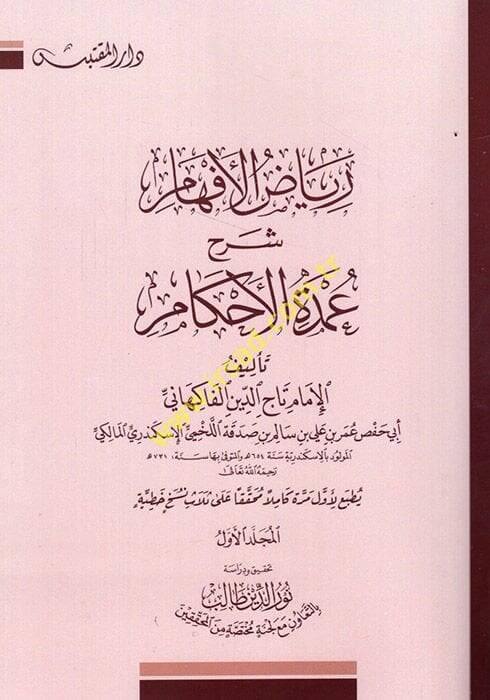 دار المقتبس
رياض الأفهام
شرح
عمدة الأحكام
تأليف
الإمام تاج الدين الفاكهاني
أبي حفص عمر بن علي بن سالم بن صدقة اللخمي الإسكندري المالكي
المولود بالإسكندرية سنة ٦٥٤ هـ والمتوفى بها سنة: ٧٣١ هـ
رحمه الله تعالى
يُطبع لأوّل مرّة كاملاً مُحقّقاً على ثلاث نُسخ خطيّةٍ
المجلد الأول
تحقيق ودراسة
نور الدين طالب
بالتعاون مع لجنة مختصة من المحققين